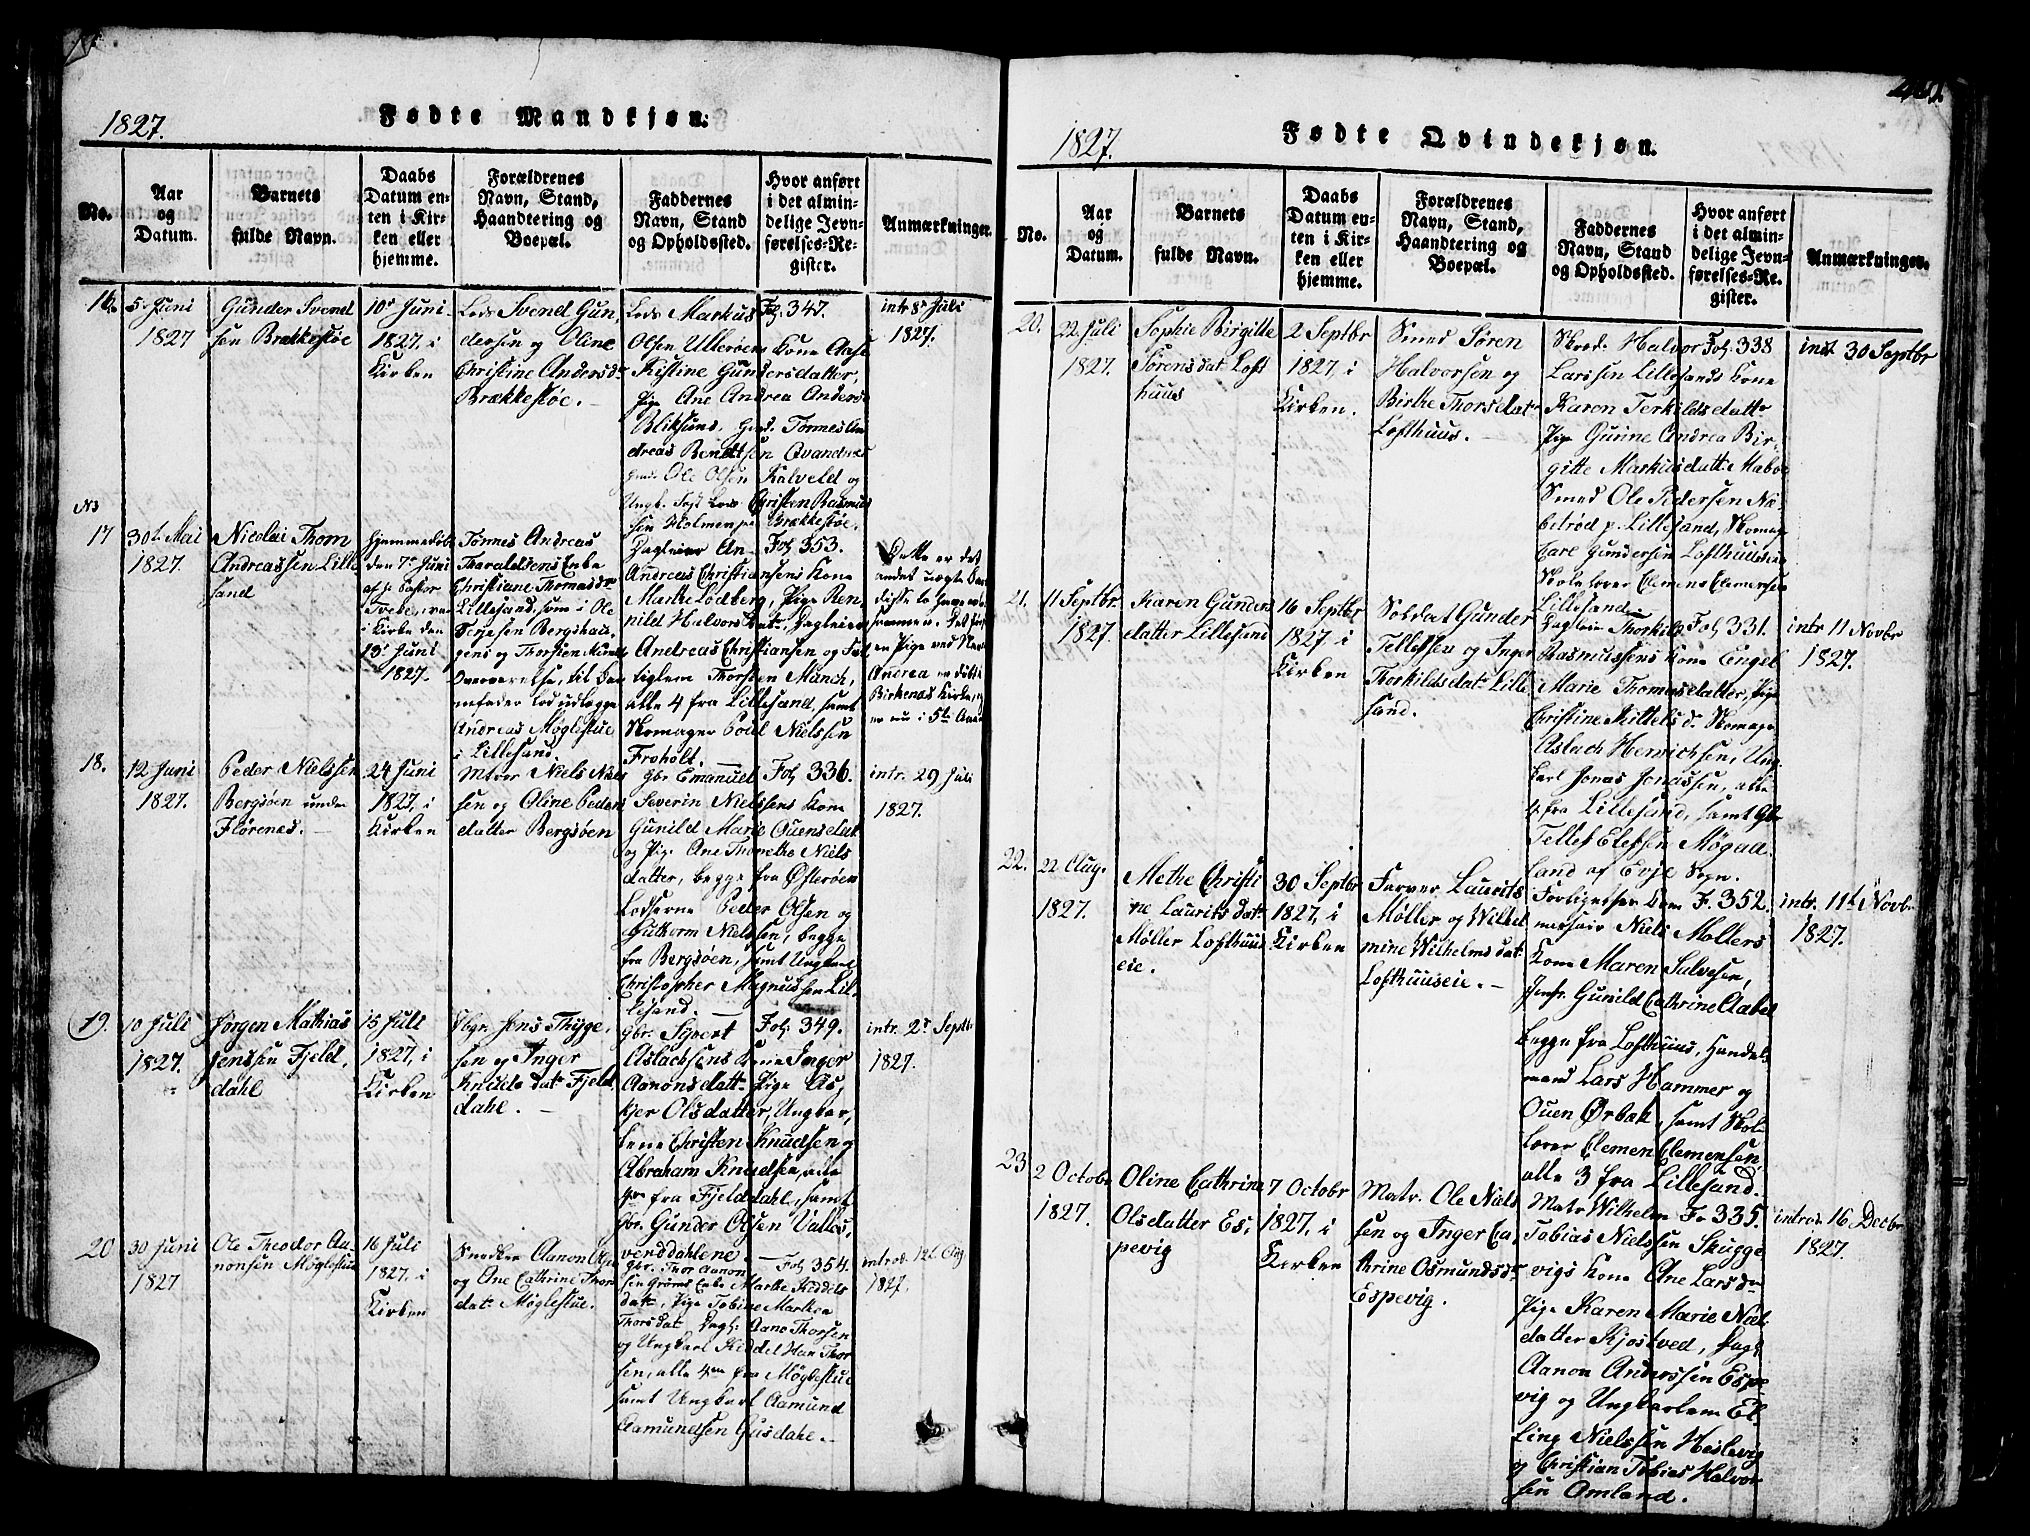 1827.
Fødte Mandkjøn.
No.
Aar
og
Datum.
Barnets
fulde Navn.
Daabs
Datum en-
ten i Kir-
ken eller
hjemme.
Forældrenes
Navn, Stand,
Haandtering og
Boepæl.
Faddernes
Navn, Stand
og Opholdssted.
Hvor anført
i det almin-
delige Jevn-
førelses-Re-
gister.
Anmærkninger.
16.
5te Juni
1827
Gunder Svend
sen Brækkestøe
10de Juni
1827, i
Kirken
Lods Svend Gun,
dersen og Oline
Christine Andersdr
Brækkestøe. –
Lods Markus
Olsen Ulleröens Kone Aase
Kistine Gundersdatter,
Pige Ane Andrea Anders
Bliksund, Gmd. Tönnes An
dreas Bendtsen Qvandnes
Gmd. Ole Olsen Kalveld og
Lods Christen Rasmus
sen Holmen pr Brækkestøe.
Fol. 347.
intr 8de Juli
1827.
No
17
30te Mai
1827.
Nicolai Thom
Andreassen Lille
sand
Hjemmedøbt
den 7de Juni
af
Tvede,
i Kirke den
13de Juni
1827.
Tönnes Andreas
Tharaldsens Enke
Christiane Thomasdr
Lillesand, som i Ole
Terjesen Bergshau,
gens og Thorsten Münchs
Overværelse, til Bar
nefader Lod udlægge
Andreas Møglestue
i Lillesand.
Dagleier An-
Andreas Christiansens Kone
Marthe Lodberg, Pige Ren,
nild Halvorsdatr, Dagleier
Andreas Christiansen og Fat
tiglem Thorsten Münch,
alle 4 fra Lillesand, samt
Skomager Poul Nielssen
Froholt.
Fol. 353.
Dette er det
andet uægte Barn
disse to have
sammen. Det første
en Pige ved Navn
Andrea er døbt i
Birkenæs Kirke, og
er nu i 5te Aar
18.
12 Juni
1827.
Peder Nielssen
Bergsøen under
Flørenæs. –
24 Juni
1827, i
Kirken
Matr. Niels Niels
sen og Oline Peders
datter Bergsøen
Gbr. Emanuel
Severin Nielssens Kone
Gunild Marie Ouensdat
og Pige Ane Thonette Niels
datter, begge fra Østerøen
Lodserne Peder Olsen og
Guthorm Nielssen, begge
fra Bergsøen, samt Ungkarl
Christopher Magnussen Lil-
lesand. –
Fol. 336.
intr. 29 Juli
1827.
19.
10 Juli
1827.
Jørgen Mathias
Jenssen Fjeld,
dahl
15 Juli
1827, i
Kirken
Gbgr. Jens Thyge,
sen og Inger
Knudsdatr Fjeld
dahl. –
Gbr. Syvert
Aslachsens Kone Inger
Aanonsdatr. Pige As,
kjer Olsdatter, Ungkar,
lene Christen Knudsen og
Abraham Knudsen, alle
fra Fjelddahl, samt
Gbr. Gunder Olsen Valløs,
verddahlene. –
Fol. 349.
intr. 2de Septbr
1827.
20
30 Juni
1827
Ole Theodor Aa-
nonsen Møglestue
16 Juli
1827, i
Kirken
Snedker Aanon
og Ane Cathrine Thors
datr. Møglestue.
Gbr. Thor Aanon
sen Grøms Enke Marthe Keddels
datr, Pige Tobine Marthea
Thorsdat. Dagl. Aano Thorsen
og Ungkarl Keddel Han Thor
sen, alle 4re fra Møglestue
samt Ungkarl Aamund
Aamundsen Gusdahl. –
Fol. 354.
introd. 12te Aug
1827.
1827.
Fødte Qvindekjøn.
No.
Aar
og
Datum.
Barnets
fulde Navn.
Daabs
Datum en-
ten i Kir-
ken eller
hjemme.
Forældrenes
Navn, Stand,
Haandtering og
Boepæl.
Faddernes
Navn, Stand
og Opholdssted.
Hvor anført
i det almin-
delige Jevn-
førelses-Re-
gister.
Anmærkninger.
20.
22 Juli
1827.
Sophie Birgitte
Sørensdat. Loft
huus
2 Septbr
1827, i
Kirken.
Smed Søren
Halvorsen og
Birthe Thorsdatr
Lofthuus. –
Skrd. Halvor
Larssen Lillesands Kone
Karen Terkildsdattr
Pige Gurine Andrea Bir-
gitte Markusdatr.
Smed Ole Pedersen Næ,
betrød p. Lillesand, Skomagr
Carl Gundersen Lofthuuseie
Skolelærer Clemen Clemensen
Lillesand.
Fol. 338
intr 30 Septbr
21.
11 Septbr.
1827.
Karen Gunders
datter Lillesand
16 Septbr
1827 i
Kirken
Soldat Gunder
Tellefsen og Inger
Thorkildsdatr. Lille
sand.
Dagleier Thorkild
Rasmussens Kone Engel
Marie Thomasdatter, Pige
Christine Kittelsdr. Skomagr
Aslach Henrichsen, Ung,
karl Jonas Jonassen, alle
4 fra Lillesand, samt Gbr
Tellef Elefsen Møgaa-
land af Evje Sogn.
Fol. 331.
intr. 11 Novbr
1827.
22.
22 Aug.
1827.
Methe Christi
ne Lauritsdatr
Møller Lofthuus
eie.
30 Septbr
1827, i
Kirken
Farver Laurits
Møller og Wilhel
mine Wilhelmsdat.
Lofthuuseie. –
Forligelses Kom
missair Niels Møllers
Kone Maren Salvesen,
Jomfr. Gunild Cathrine Aabel
begge fra Lofthuus, Handels
mand Lars Hammer og
Ouen Ørbæk, samt Skol-
lærer Clemen Clemensen,
alle 3 fra Lillesand.
F. 352.
intr. 11te Novbr
1827.
23
2 Octobr
1827.
Oline Cathrine
Olsdatter Es,
pevig
7 Octobr
1827, i
Kirken
Matr. Ole Niels
sen og Inger Ca,
thrine Osmundsdr
Espevig.
Matr Wilhelm
Tobias Nielssen Skugge
vigs Kone Ane Larsdr
Pige Karen Marie Niels
datter Kjøstved, Dagl.
Aanon Anderssen Espe
vig og Ungkarlene El-
ling Nielssen Heslevig
og Christian Tobias Halvor
sen Omland.
Fo 335.
introd. 16 Decbr
1827.